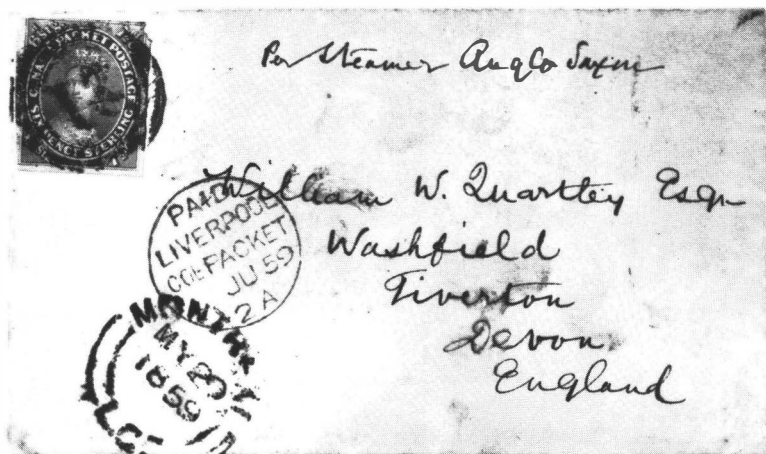 PACKET POSTAGE
SIX PENCE STERLING
Per Steamer Anglo Saxon
William W. Quartley Esqr
Washfield
Tiverton
Devon
England
PAID
LIVERPOOL
COL PACKET
JU 59
2 A
MONTR
MY
1859